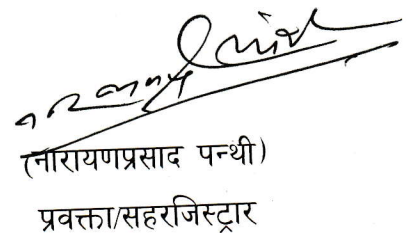 (नारायणप्रसाद पन्थी)
प्रवक्ता/सहरजिस्ट्रार